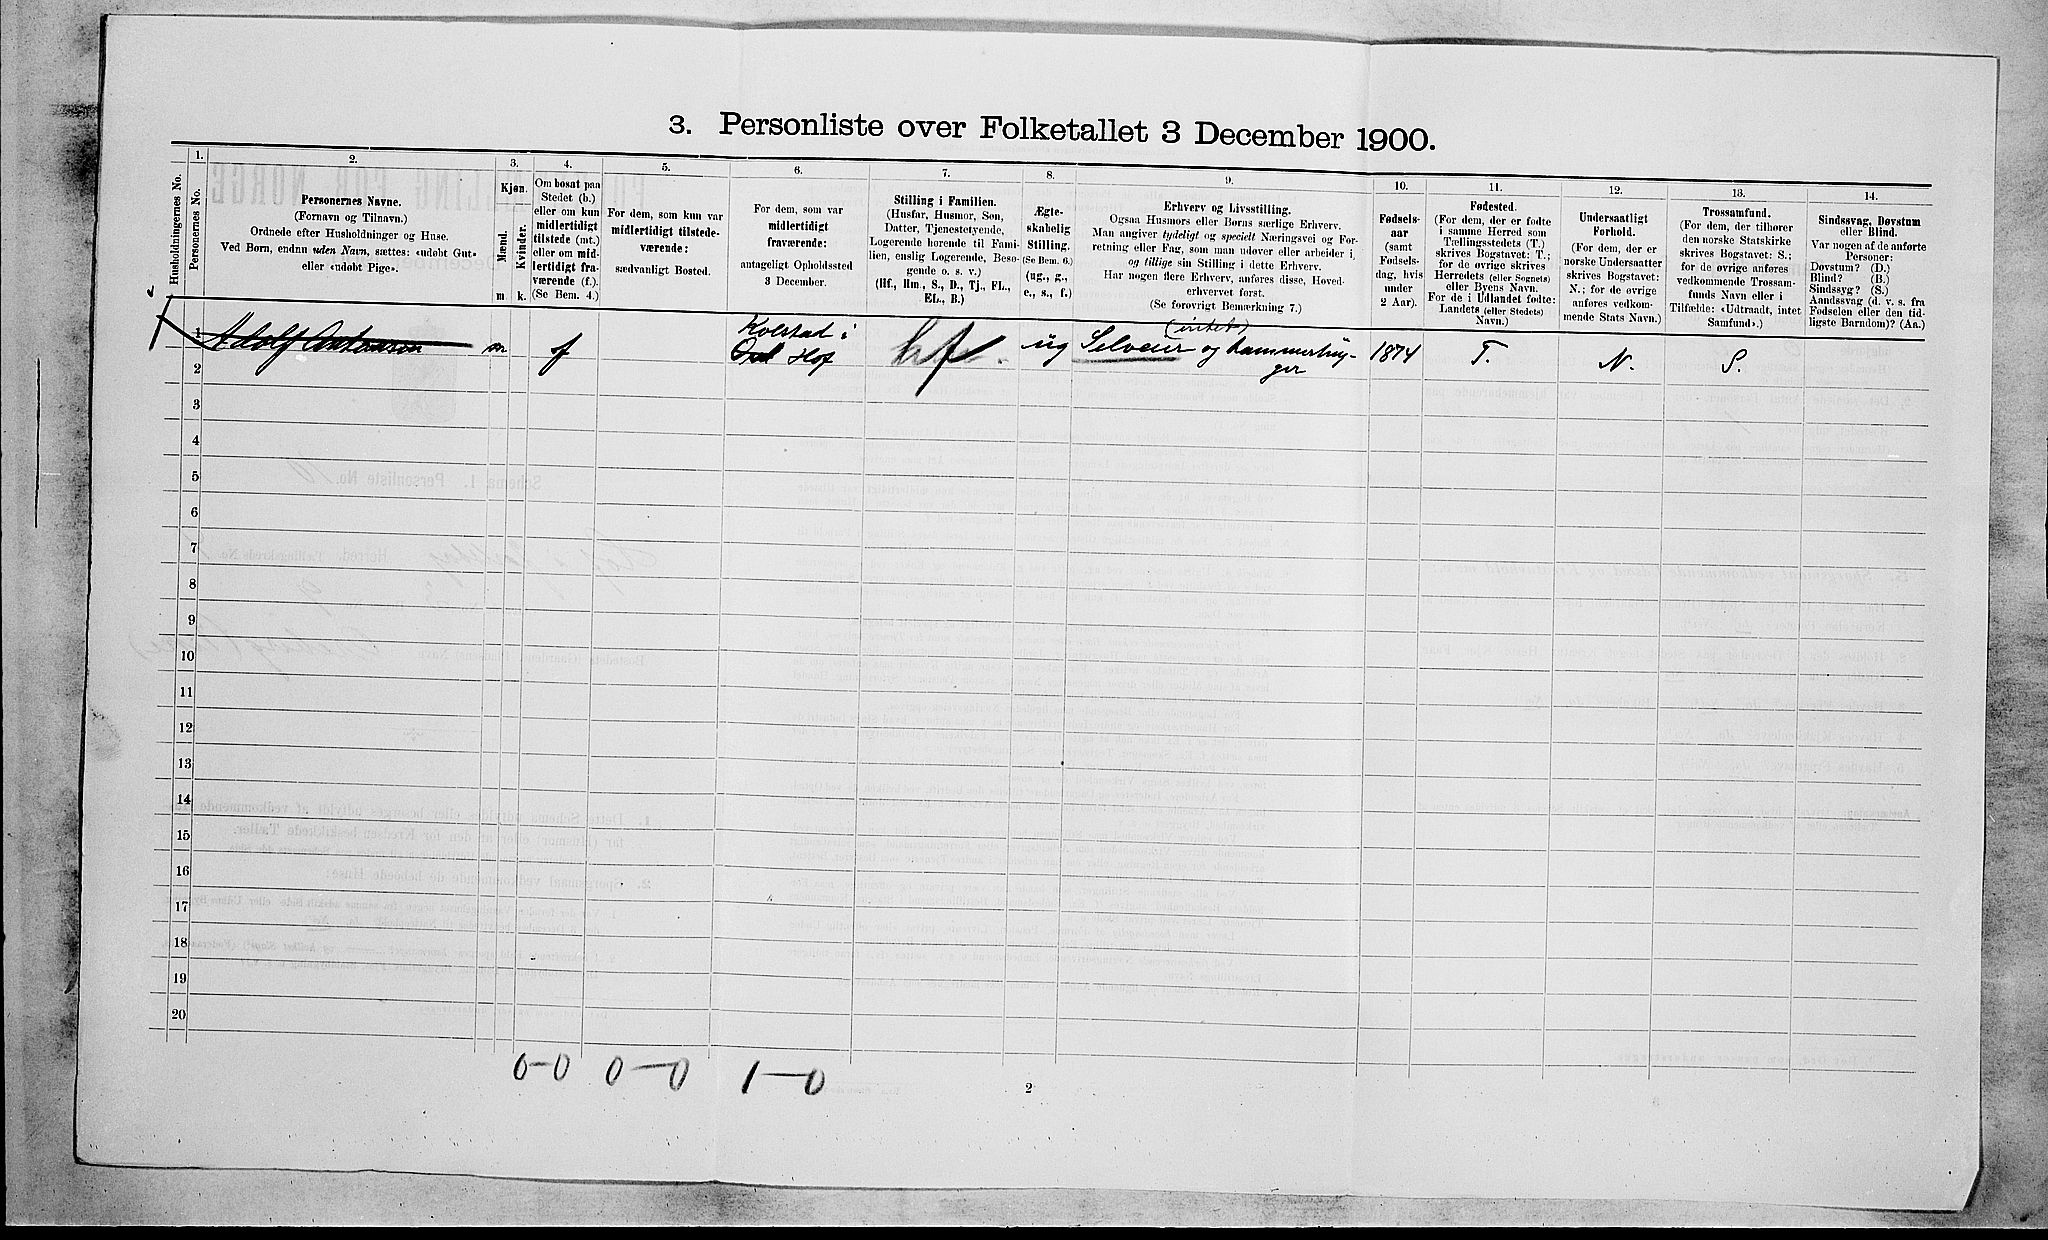 3. Personliste over Folketallet 3 December 1900.
Husholdningernes No.
1.
Personernes No.
2.
Personernes Navne.
(Fornavn og Tilnavn.)
Ordnede efter Husholdninger og Huse.
Ved Børn, endnu uden Navn, sættes: «udøbt Gut»
eller «udøbt Pige».
3.
Kjøn.
Mænd.
Kvinder.
m k.
4.
Om bosat paa
Stedet (b.)
eller om kun
midlertidigt
tilstede (mt.)
eller om mid-
lertidigt fra-
værende (f.).
(Se Bem. 4.)
5.
For dem, som kun var
midlertidigt tilstede-
værende:
sædvanligt Bosted.
6.
For dem, som var
midlertidigt
fraværende:
antageligt Opholdssted
3 December.
7.
Stilling i Familien.
(Husfar, Husmor, Søn,
Datter, Tjenestetyende,
Logerende hørende til Fami-
lien, enslig Logerende, Besø-
gende o. s. v.)
(Hf., Hm., S., D., Tj., FL.,
EL., B.)
8.
Ægte-
skabelig
Stilling.
(Se Bem. 6.)
(ug., g.,
e., s., f.)
9.
Erhverv og Livsstilling.
Ogsaa Husmors eller Børns særlige Erhverv.
Man angiver tydeligt og specielt Næringsvei og For-
retning eller Fag, som man udøver eller arbeider i,
og tillige sin Stilling i dette Erhverv.
Har nogen flere Erhverv, anføres disse, Hoved-
erhvervet først.
(Se forøvrigt Bemærkning 7.)
10.
Fødsels-
aar
(samt
Fødsels-
dag, hvis
under
2 Aar).
11.
Fødested.
(For dem, der er fødte
i samme Herred som
Tællingsstedets (T.)
skrives Bogstavet: T.;
for de øvrige skrives
Herredets (eller Sognets)
eller Byens Navn.
For de i Udlandet fødte:
Landets (eller Stedets)
Navn.)
12.
Undersaatligt
Forhold.
(For dem, der er
norske Undersaatter
skrives Bogstavet:
N.; for de øvrige
anføres vedkom-
mende Stats Navn.)
13.
Trossamfund.
(For dem, der tilhører
den norske Statskirke
skrives Bogstavet: S.;
for de øvrige anføres
vedkommende Trossam-
funds Navn eller i
Tilfælde: «Udtraadt, intet
Samfund».)
14.
Sindssvag, Døvstum
eller Blind.
Var nogen af de anførte
Personer:
Døvstum? (D.)
Blind? (B.)
Sindssyg? (S.)
Aandssvag (d. v. s. fra
Fødselen eller den tid-
ligste Barndom)? (Aa.)
1 Adolf Antonsen m f Kolstad i Hof hf. ug Selveier og tømmerhug-
ger 1874 T. N. S.
2
3
4
5
6
7
8
9
10
11
12
13
14
15
16
17
18
19
20
0-0 0-0 1-0
2